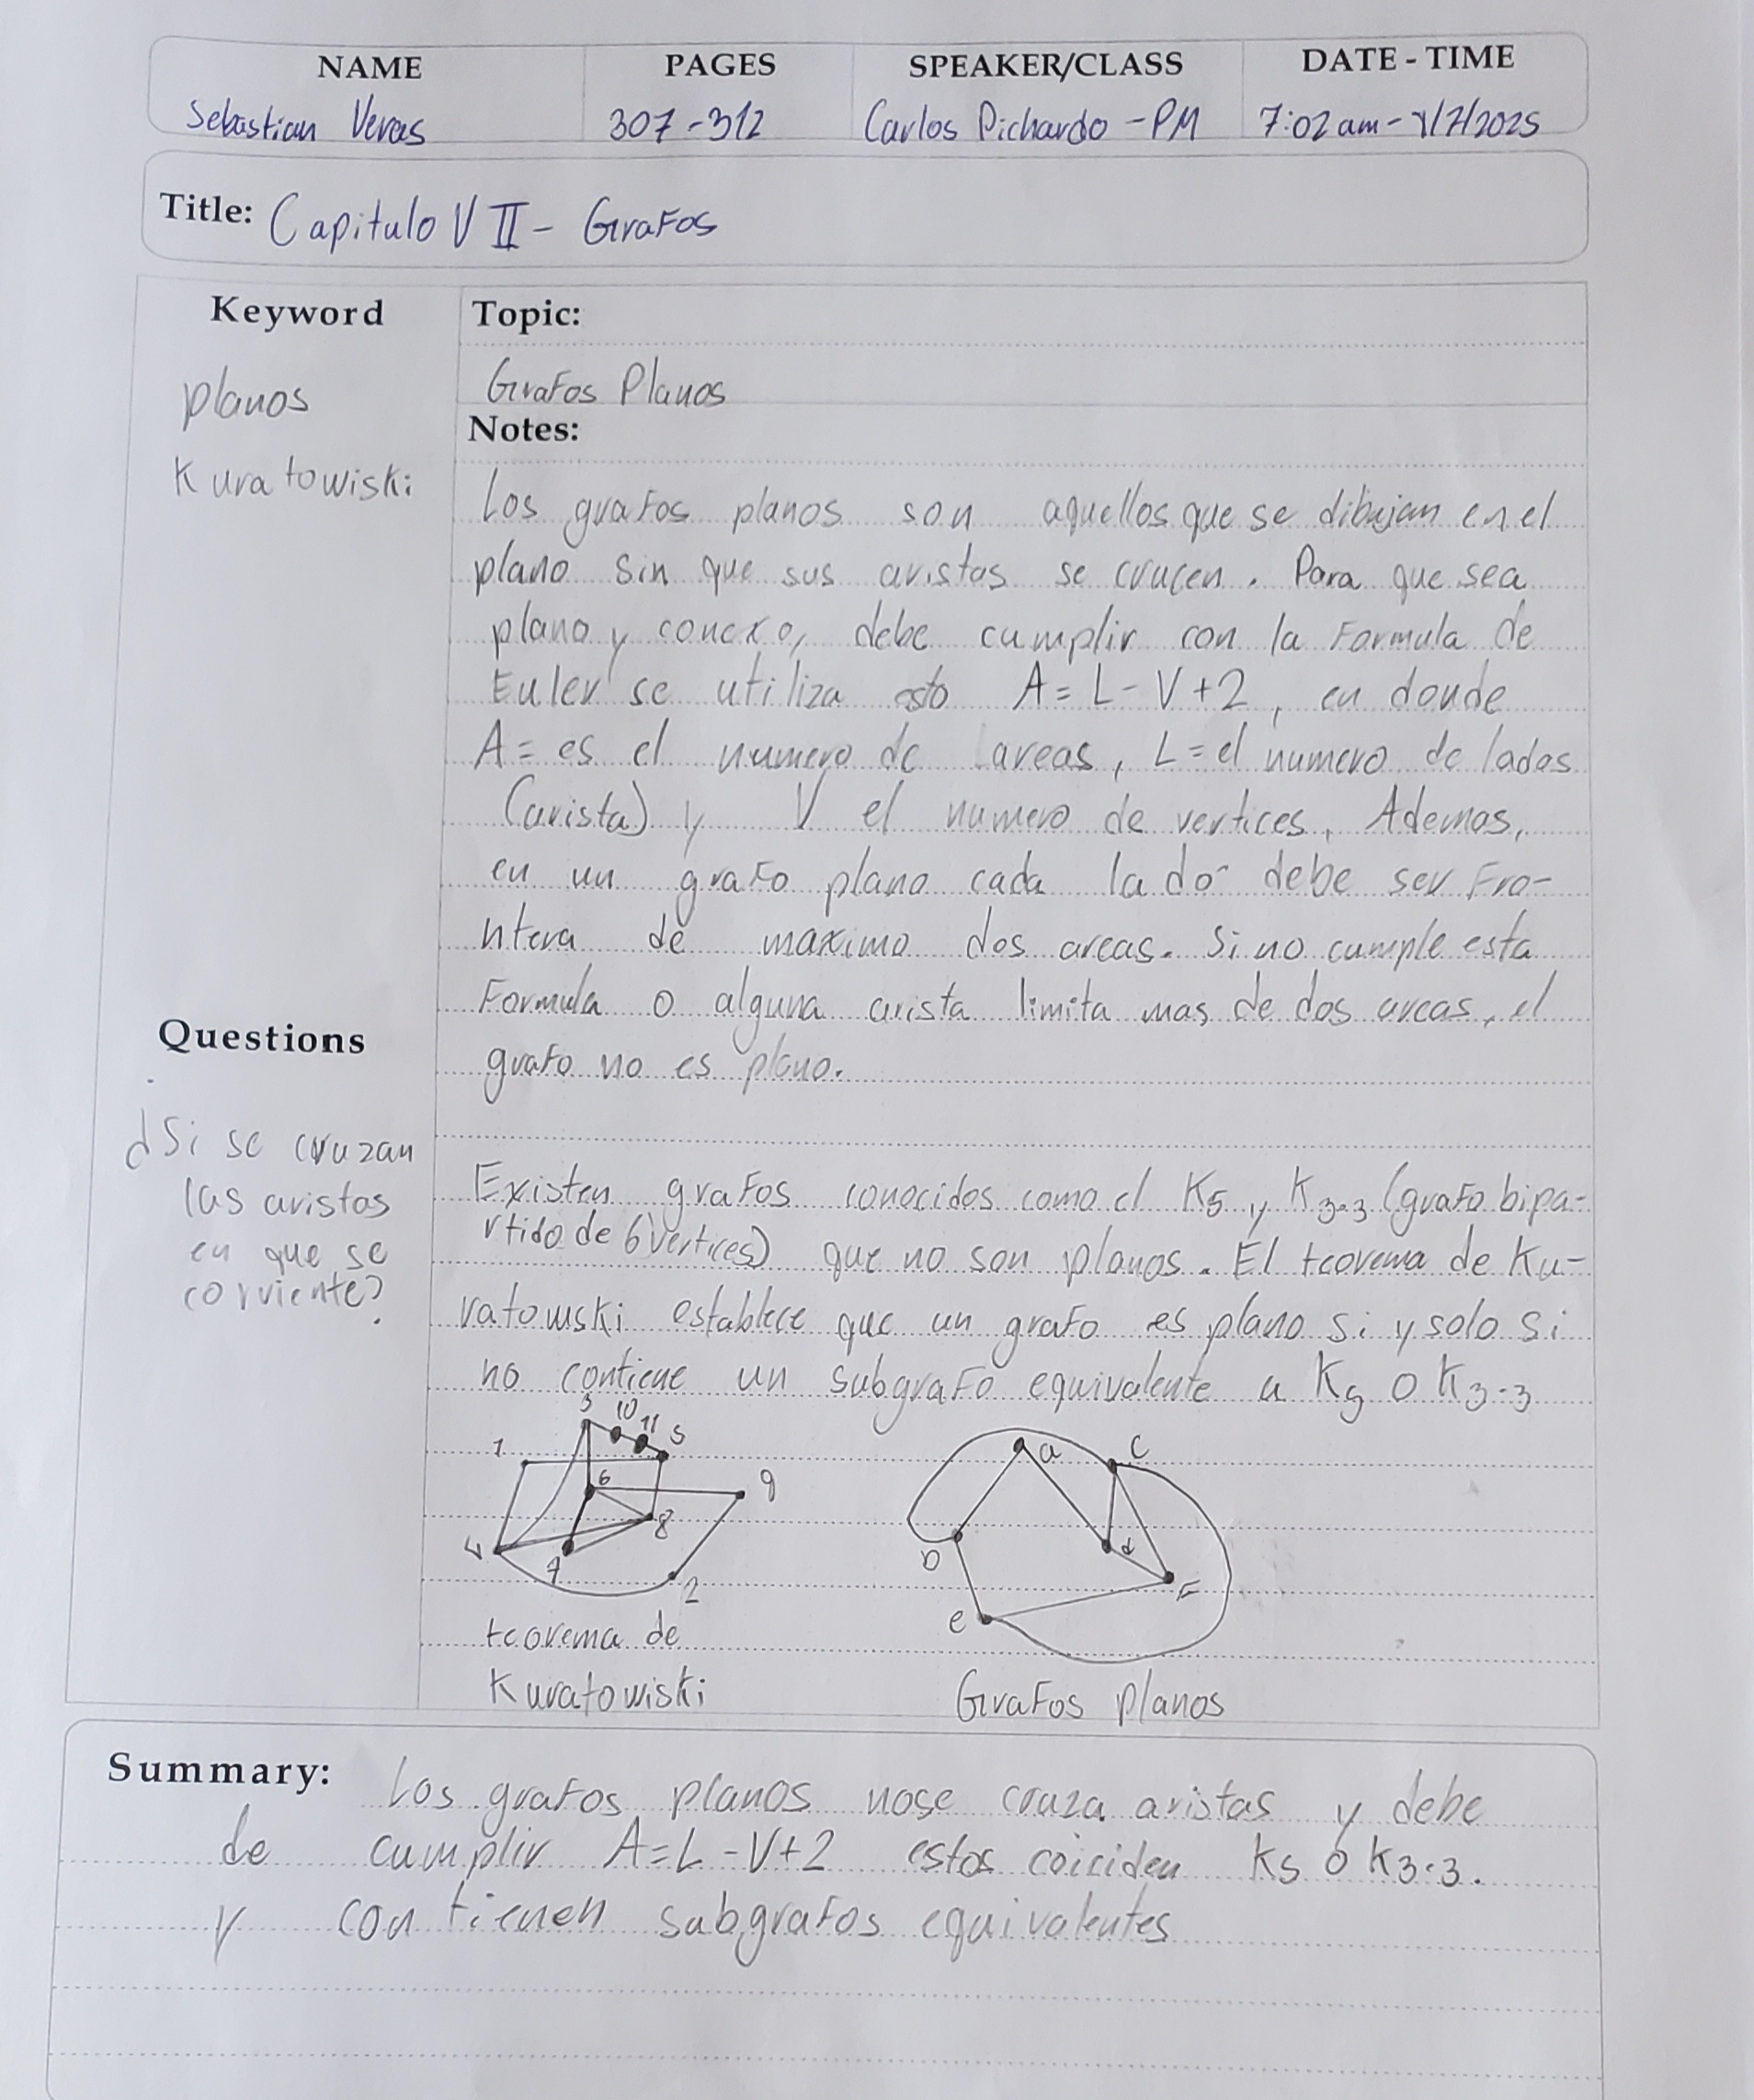 NAME PAGES SPEAKER/CLASS DATE - TIME
Sebastian Veras 307-312 Carlos Pichardo - PM 7:02 am - /7/2025
Title: Capitulo VII - Grafos
Keyword
planos
Kuratowiski
Topic:
Grafos Planos
Notes:
Los grafos planos son aquellos que se dibujan en el
plano sin que sus aristas se crucen. Para que sea
plano y conexo, debe cumplir con la Formula de
Euler se utiliza esto A = L - V + 2, en donde
A = es el numero de areas, L = el numero de lados
(arista) y V el numero de vertices, Ademas,
en un grafo plano cada lado debe ser Fro-
ntera de maximo dos areas. Si no cumple esta
Formula o alguna arista limita mas de dos areas, el
grafo no es plano.
Questions
¿Si se cruzan
las aristas
en que se
corviente?
Existen grafos conocidos como el K5 y K3.3 (grafo bipa-
rtido de 6 vertices) que no son planos. El teorema de Ku-
ratowski establece que un grafo es plano si y solo si
no contiene un subgrafo equivalente a K5 o K3.3
3 10 11 5
1
6 9
8
4 7
2
teorema de
Kuratowiski
a c
b d
F
e
Grafos planos
Summary: Los grafos planos nose cruza aristas y debe
de cumplir A=L-V+2 estos coiciden K5 o K3.3.
y contienen subgrafos equivalentes